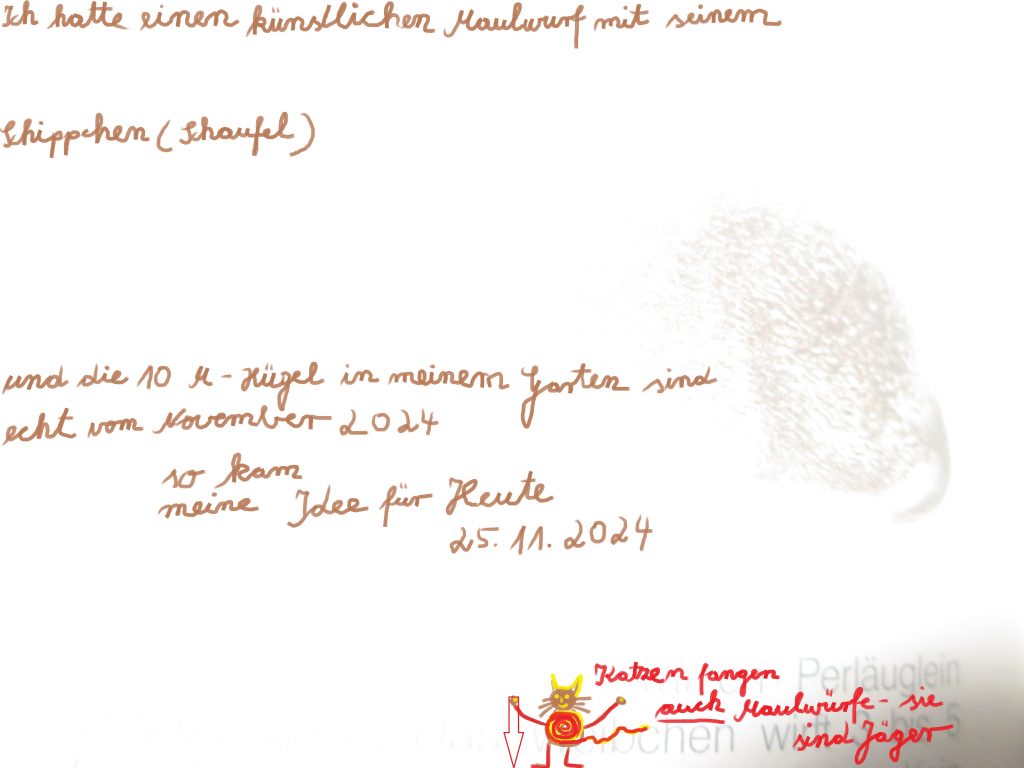 Ich hatte einen künstlichen Maulwurf mit seinem
Schippchen (Schaufel)
und die 10 M-Hügel in meinem Garten sind
echt vom November 2024
so kam
meine Idee für Heute
25.11.2024
Katzen fangen
Perläuglein
auch Maulwürfe - sie
weibchen wirft 3 bis 5
sind Jäger